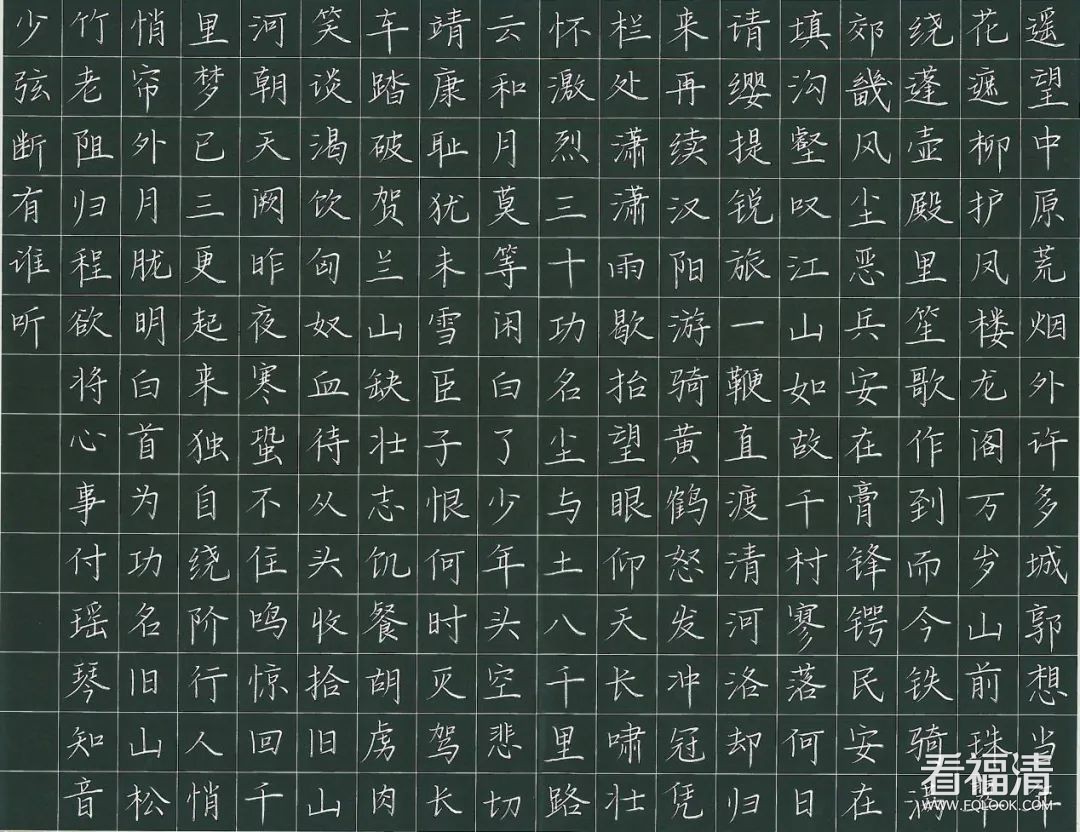 遥望中原荒烟外许多城郭想当
花遮柳护凤楼龙阁万岁山前珠
绕蓬壶殿里笙歌作到而今铁骑满
郊畿风尘恶兵安在膏锋锷民安在
填沟壑叹江山如故千村寥落何日
请缨提锐旅一鞭直渡清河洛却归
来再续汉阳游骑黄鹤怒发冲冠凭
栏处潇潇雨歇抬望眼仰天长啸壮
怀激烈三十功名尘与土八千里路
云和月莫等闲白了少年头空悲切
靖康耻犹未雪臣子恨何时灭驾长
车踏破贺兰山缺壮志饥餐胡虏肉
笑谈渴饮匈奴血待从头收拾旧山
河朝天阙昨夜寒蛩不住鸣惊回千
里梦已三更起来独自绕阶行人悄
悄帘外月胧明白首为功名旧山松
竹老阻归程欲将心事付瑶琴知音
少弦断有谁听
看福清
WWW.FQLOOK.COM